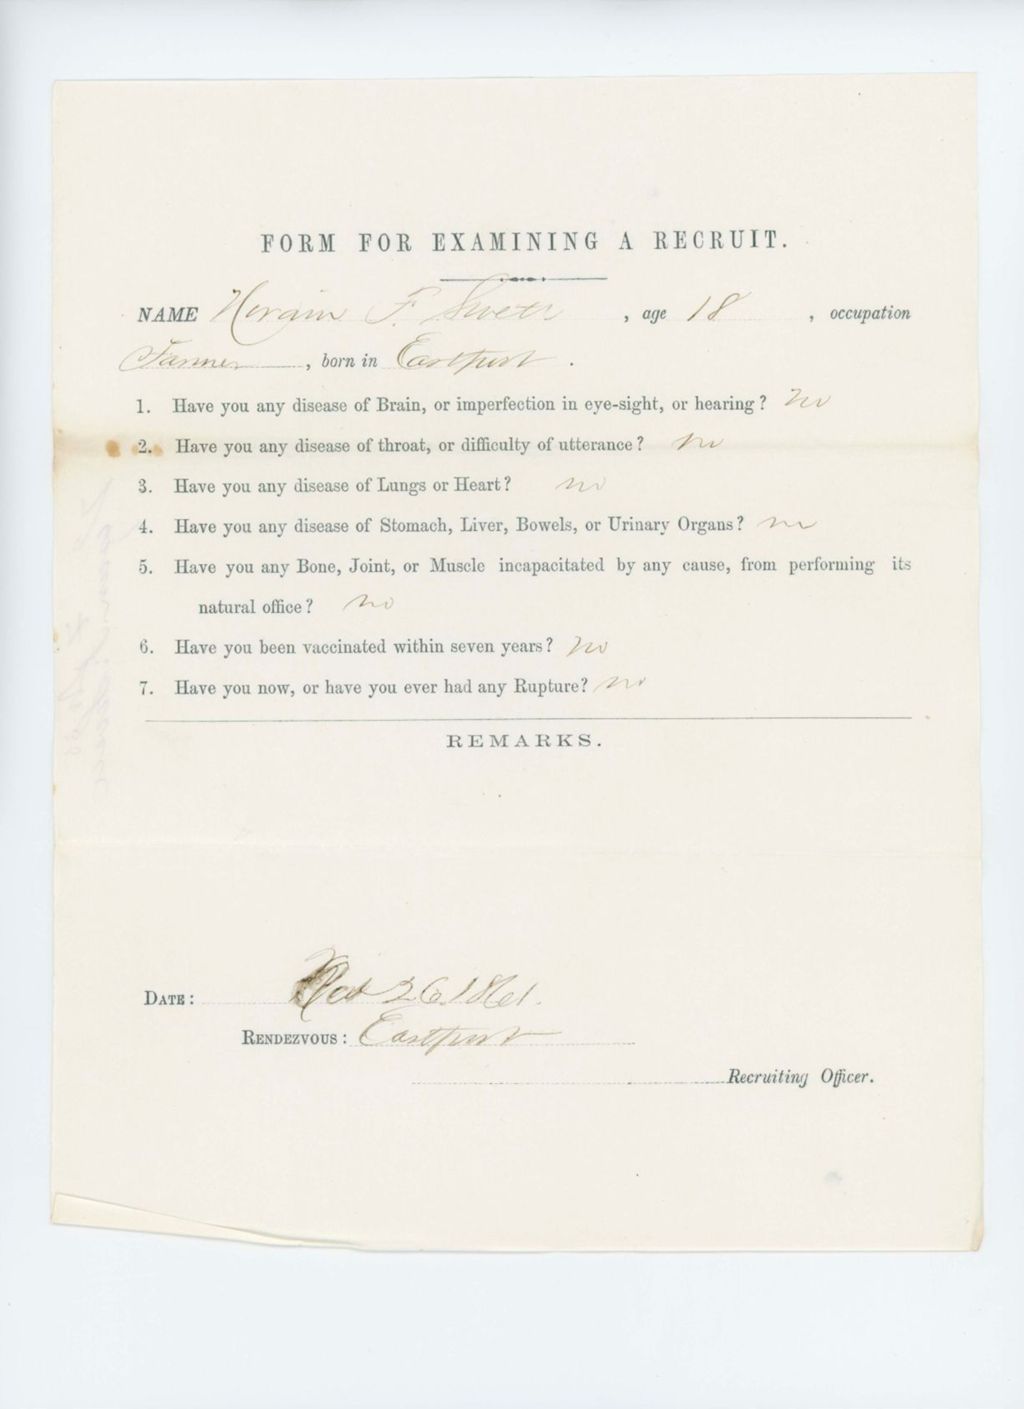 FORM FOR EXAMINING A RECRUIT.
NAME Horain F. Swett , age 18 , occupation
Farmer , born in Eastport .
1. Have you any disease of Brain, or imperfection in eye-sight, or hearing? No
2. Have you any disease of throat, or difficulty of utterance? No
3. Have you any disease of Lungs or Heart? No
4. Have you any disease of Stomach, Liver, Bowels, or Urinary Organs? No
5. Have you any Bone, Joint, or Muscle incapacitated by any cause, from performing its
natural office? No
6. Have you been vaccinated within seven years? No
7. Have you now, or have you ever had any Rupture? No
REMARKS.
DATE: 26. 1861.
RENDEZVOUS: Eastport
Recruiting Officer.